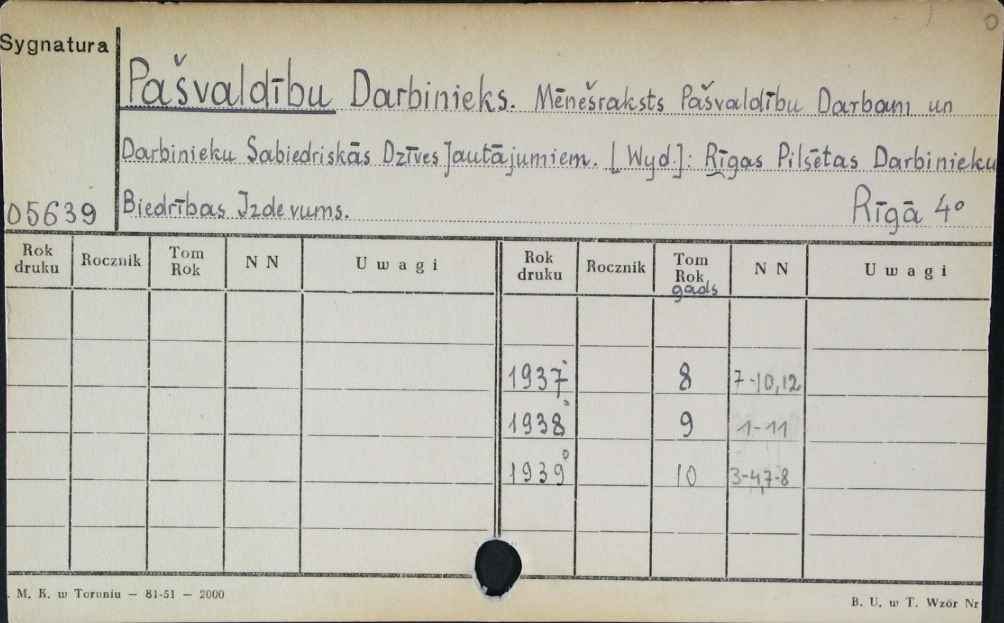 0
Sygnatura
Pašvaldību Darbinieks. Mēnešraksts Pašvaldību Darbam un
Darbinieku Sabiedriskās Dzīves Jautājumiem. [Wyd.]: Rīgas Pilsētas Darbinieku
05639 Biedrības Izdevums. Rīgā 4°
Rok druku Rocznik Tom Rok N N Uwagi Rok druku Rocznik Tom Rok gads N N Uwagi
1937 8 7-10,12
1938 9 1-11
1939 10 3-4,7-8
. M. K. w Toruniu — 81-51 — 2000
B. U. w T. Wzór Nr